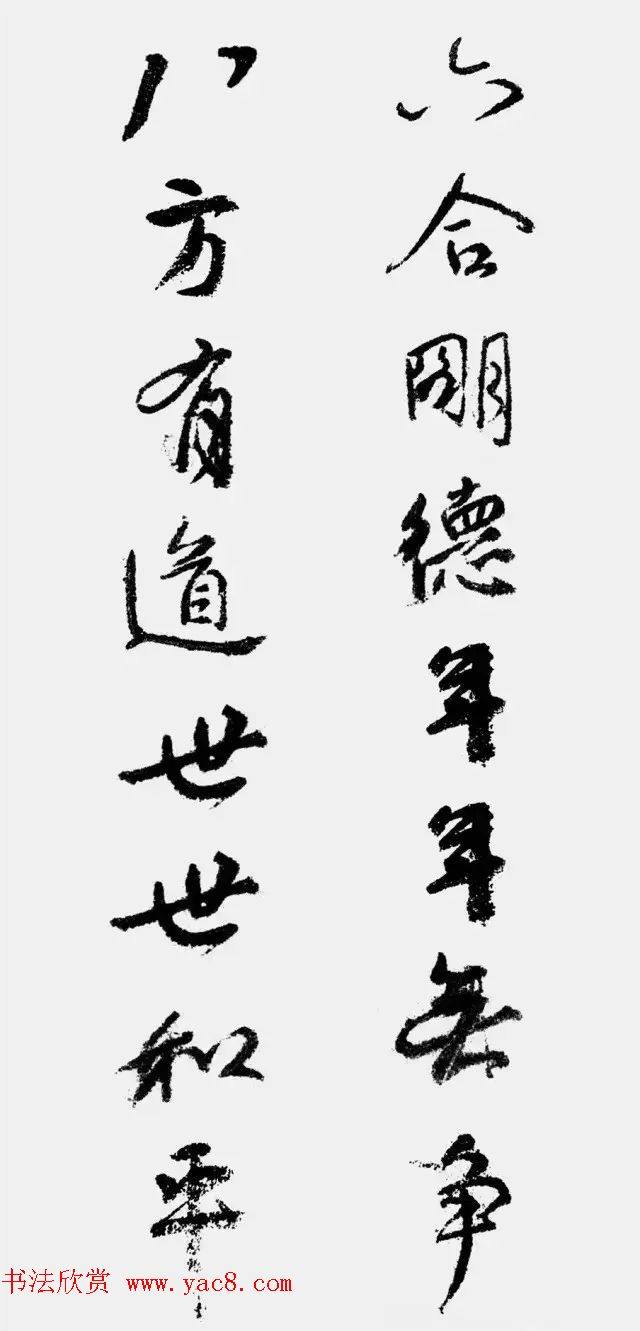 六合朙德年年無争
八方有道世世和平
书法欣赏 www.yac8.com